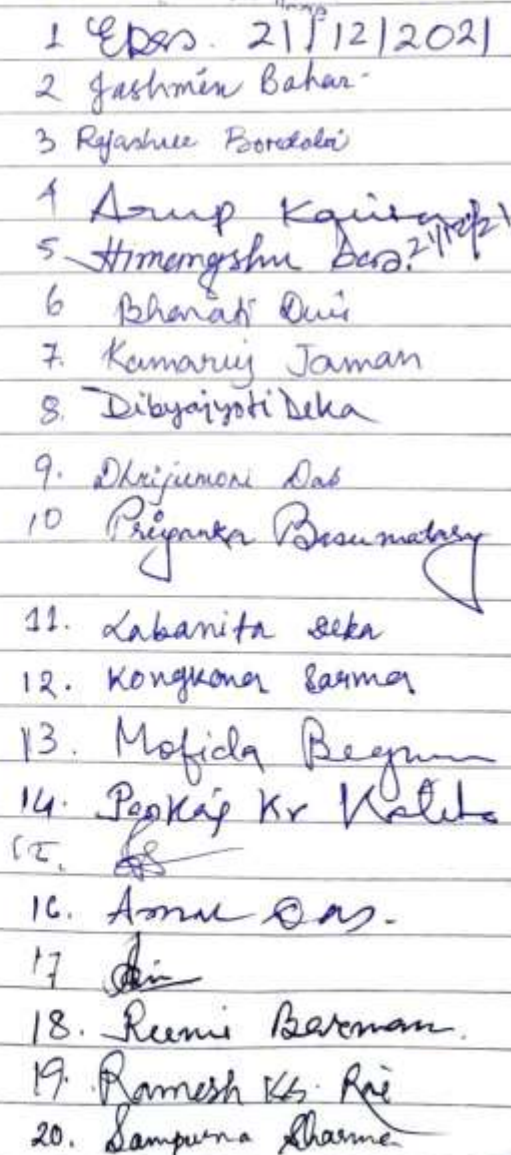 1 EDas. 21/12/2021
2 Jashmin Bahar
3 Rajashree Bordoloi
4 Arup
5 Himangshu Das. 21/12/21
6 Bharati Devi
7. Kamaruj Jaman
8. Dibyajyoti Deka
9. Dhrijumoni Das
10 Priyanka Basumatary
11. Labanita Deka
12. Kongkona Sarma
13. Mofida Begum
14. Pankaj Kr Kalita
15.
16. Amal Das.
17
18. Rumi Barman.
19. Ramesh Kr. Roi
20. Sampurna Sharma